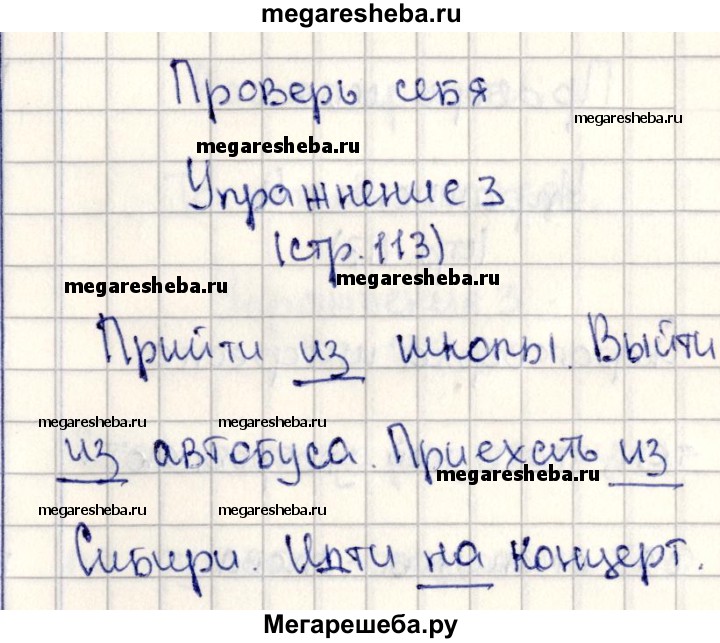 megaresheba.ru
Проверь себя
megaresheba.ru
megaresheba.ru
Упражнение 3
(стр. 113)
megaresheba.ru
megaresheba.ru
Прийти из школы. Выйти
megaresheba.ru megaresheba.ru
из автобуса. Приехать из
megaresheba.ru
megaresheba.ru megaresheba.ru
Сибири. Идти на концерт.
Мегарешеба.ру